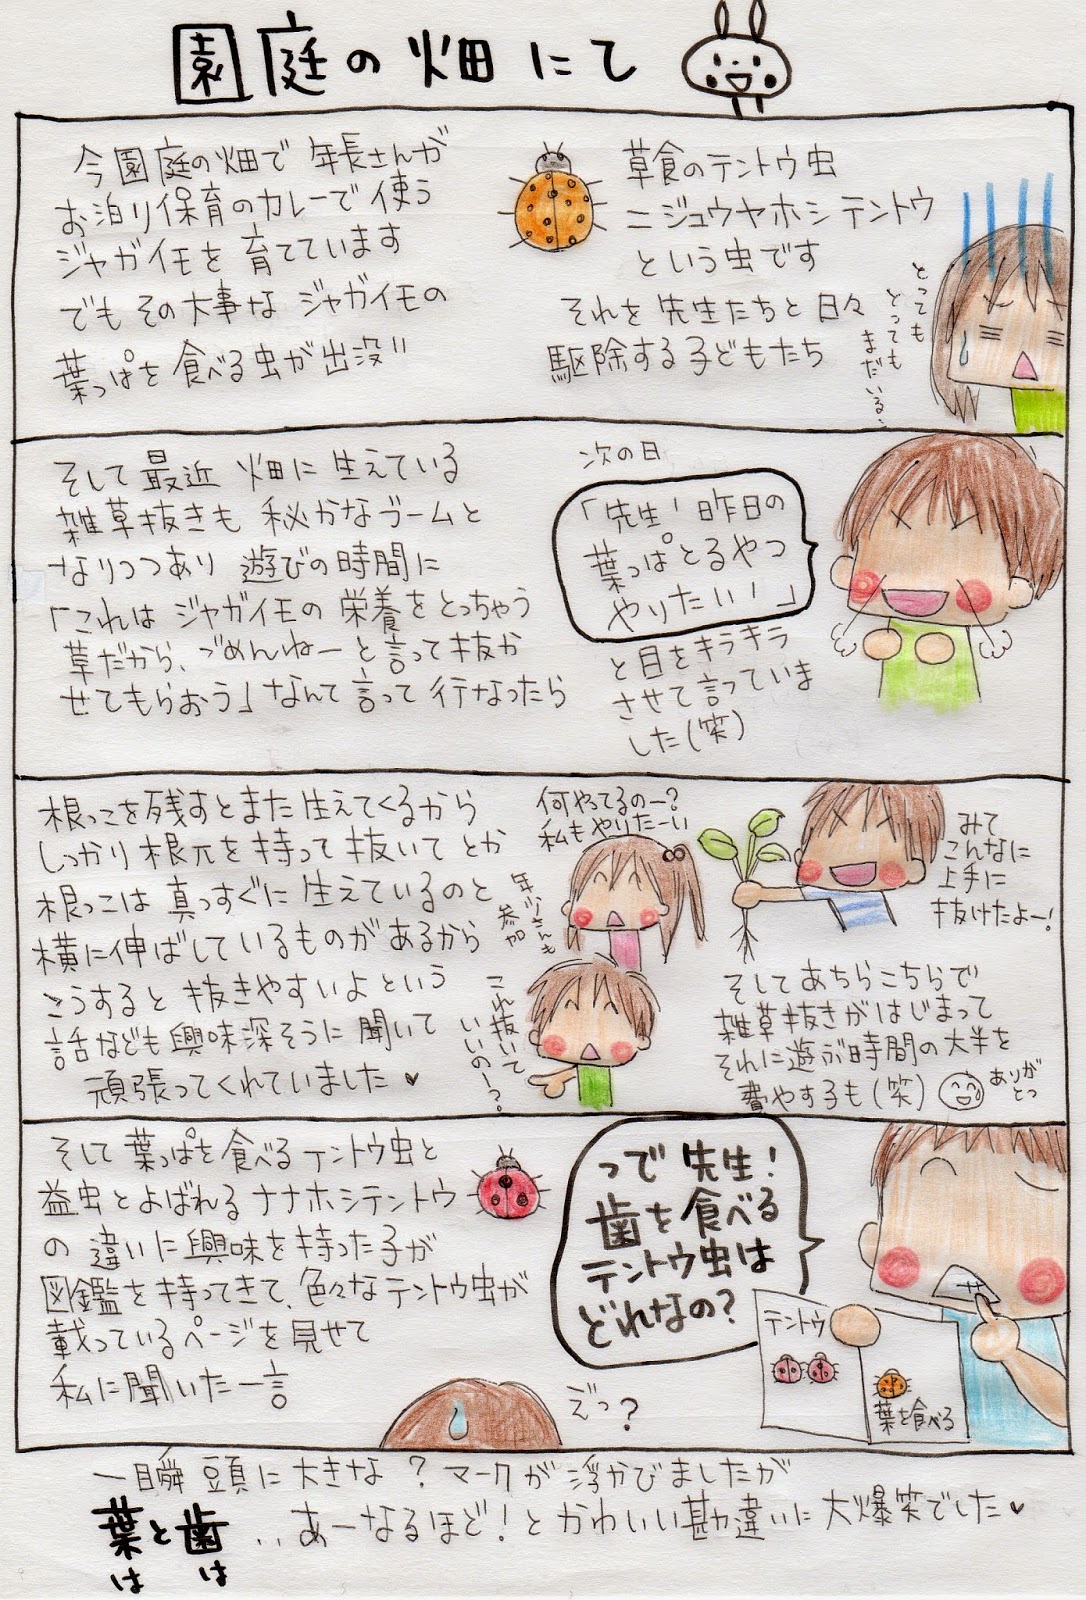 園庭の畑にて
今園庭の畑で年長さんが
お泊り保育のカレーで使う
ジャガイモを育てています
でもその大事なジャガイモの
葉っぱを食べる虫が出没!!
草食のテントウ虫
ニジュウヤホシテントウ
という虫です
それを先生たちと日々
駆除する子どもたち
とっても
とっても
まだいる…
そして最近畑に生えている
雑草抜きも秘かなブームと
なりつつあり遊びの時間に
「これはジャガイモの栄養をとっちゃう
草だから、ごめんねーと言って抜か
せてもらおう」なんて言って行なったら
次の日
「先生!昨日の
葉っぱとるやつ
やりたい!」
と目をキラキラ
させて言っていま
した(笑)
根っこを残すとまた生えてくるから
しっかり根元を持って抜いてとか
根っこは真っすぐに生えているのと
横に伸ばしているものがあるから
こうすると抜きやすいよという
話なども興味深そうに聞いて
頑張ってくれていました♥
何やってるのー?
私もやりたーい
年少さんも
参加
これ抜いて
いいのー?
みて
こんなに
上手に
抜けたよー!
そしてあちらこちらで
雑草抜きがはじまって
それに遊ぶ時間の大半を
費やす子も(笑)
ありが
とっ
そして葉っぱを食べるテントウ虫と
益虫とよばれるナナホシテントウ
の違いに興味を持った子が
図鑑を持ってきて、色々なテントウ虫が
載っているページを見せて
私に聞いた一言
っで先生!
歯を食べる
テントウ虫は
どれなの?
テントウ
葉を食べる
えっ?
一瞬頭に大きな?マークが浮かびましたが
葉と歯‥あーなるほど!とかわいい勘違いに大爆笑でした♥
は は